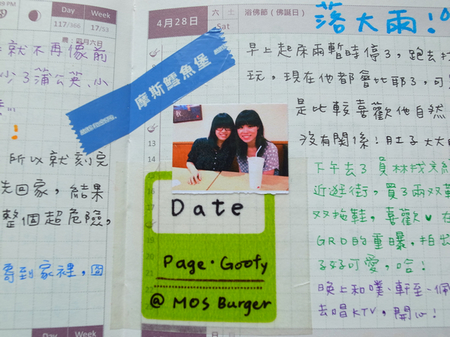 Day
Week
117/
17/
就不再像前
小3蒲公英.小
所以就刻完
先回家,結果
整個超危險,
到家裡,
Day
Week
4月28日
六
土
浴佛節(佛誕日)
Sat
落大雨!
早上起床雨暫時停3,跑去
玩,現在他都會比耶3,可
是比較喜歡他自然
沒有關係!肚子大大
摩斯鱈魚堡
Date
Page · Goofy
@ MOS Burger
下午去3員林找
近逛街,買3兩双
双拖鞋,喜歡♥在
GRD的重曝,拍出
3好可愛,哈!
晚上和噗、軒至、佩
去唱KTV,開心!